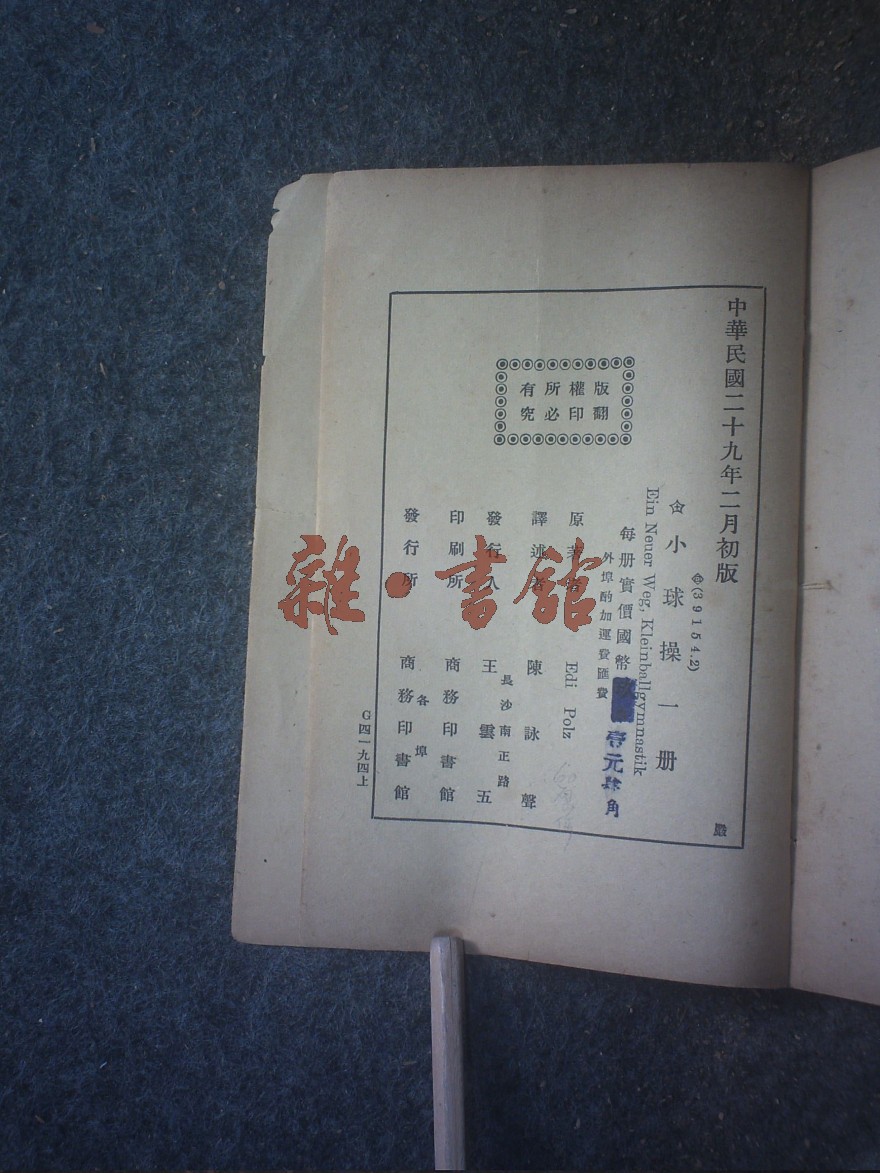 中華民國二十九年二月初版
(39154.2)
小球操一册
Ein Neuer Weg, Kleinballgymnastik
每册實價國幣壹元肆角
外埠酌加運費匯費
版權所有
翻印必究
原著者 Edi Polz
譯述者 陳詠聲
發行人 王雲五
長沙南正路
印刷所 商務印書館
發行所 商務印書館
各埠
G四一九四上
殿
雜·書館